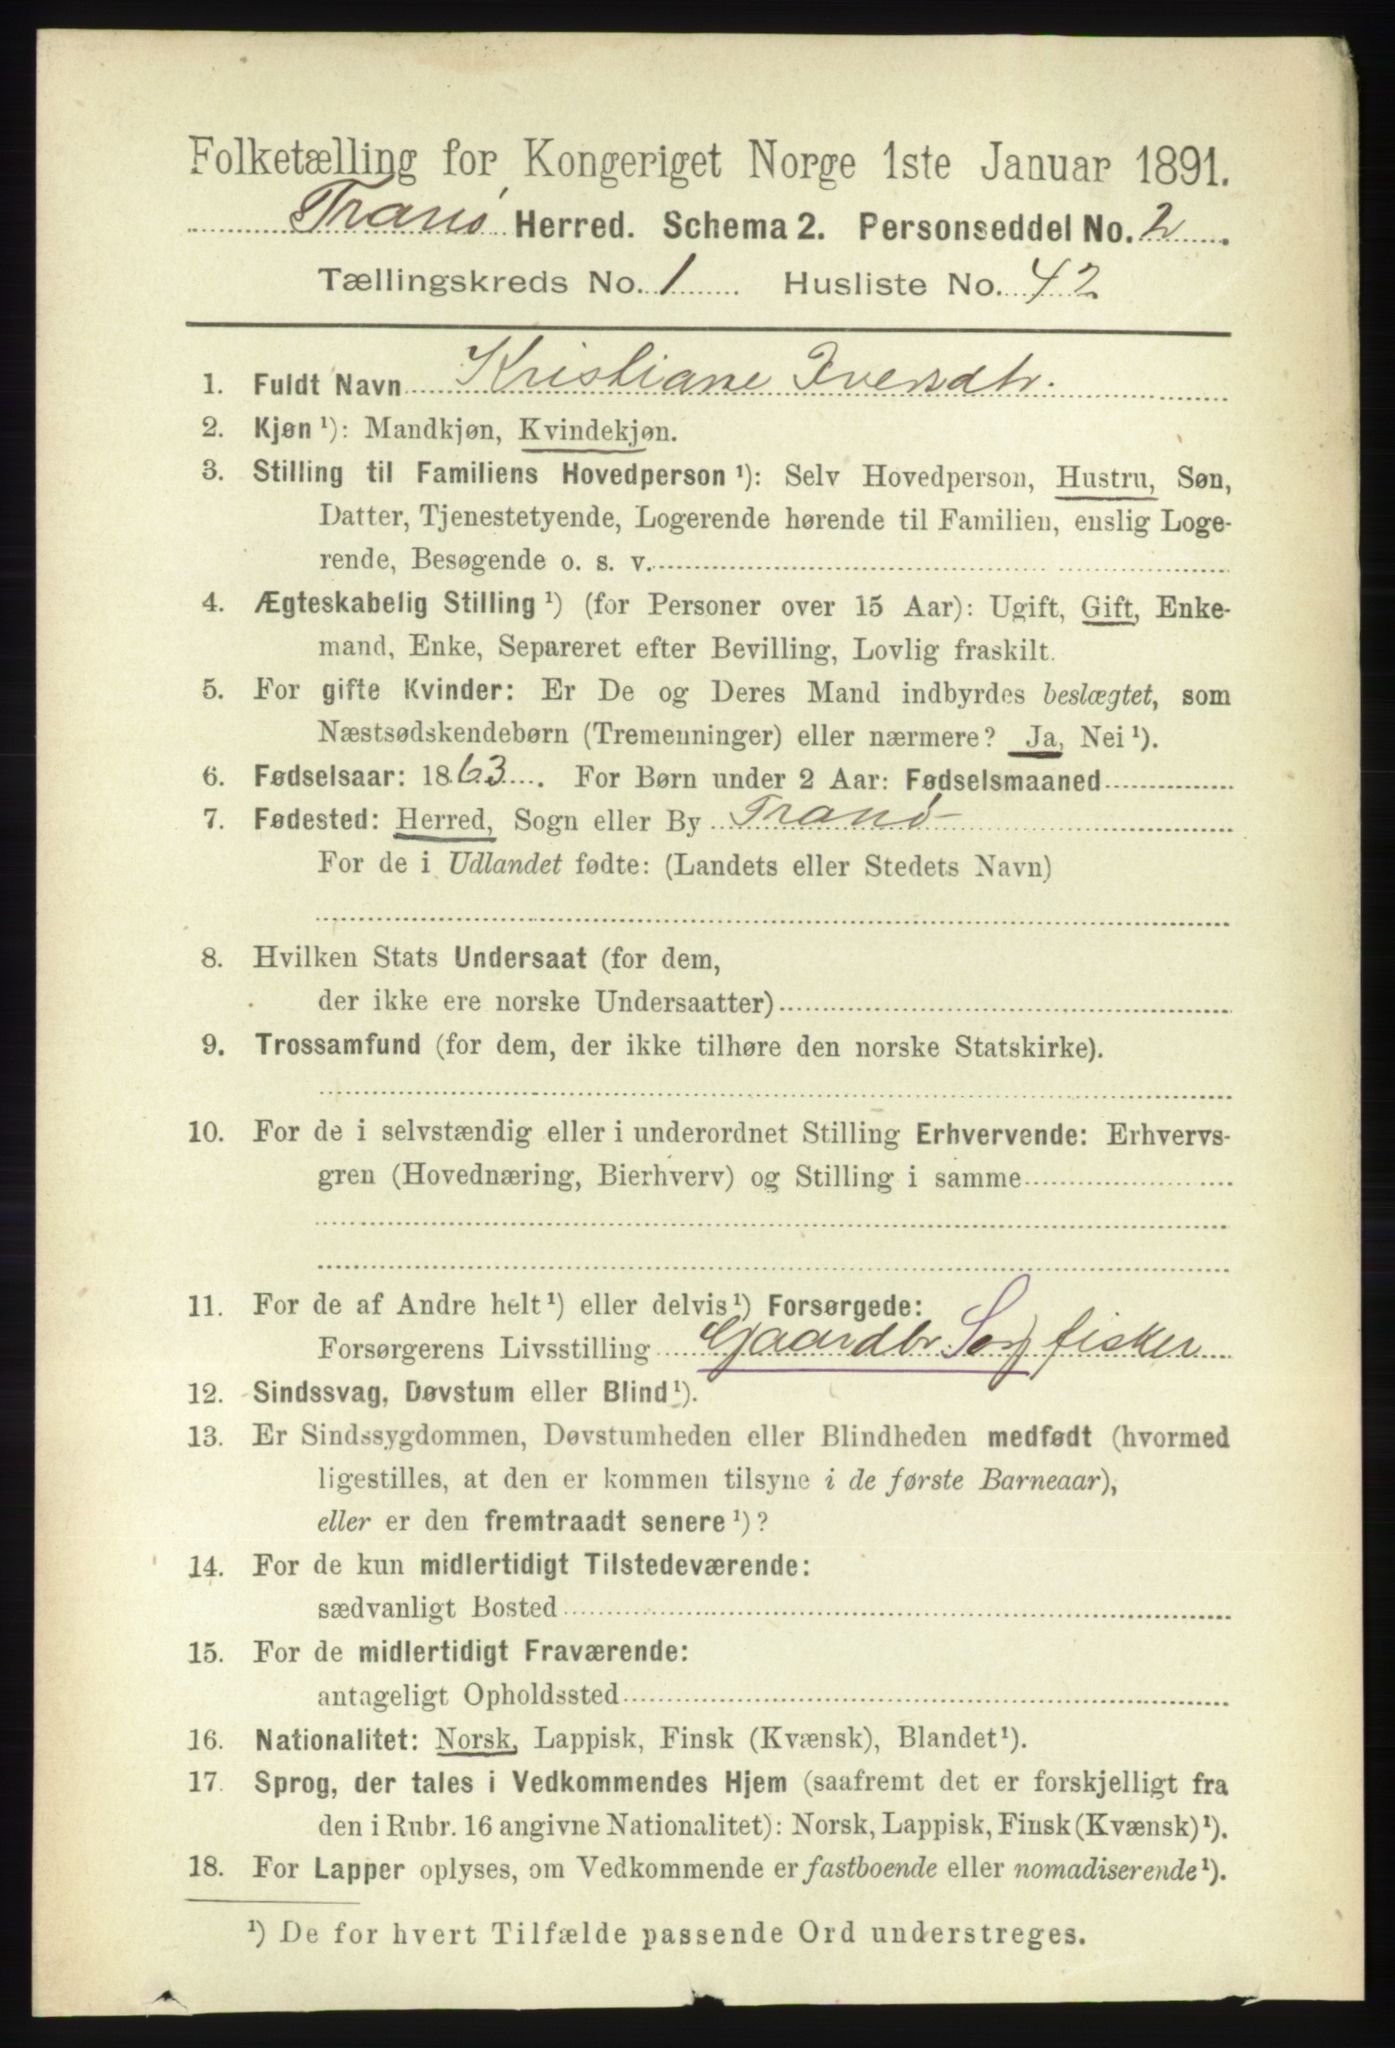 Folketælling for Kongeriget Norge 1ste Januar 1891.
Tranø Herred. Schema 2. Personseddel No. 2.
Tællingskreds No. 1 Husliste No. 42
1. Fuldt Navn Kristiane Iversdtr.
2. Kjøn¹): Mandkjøn, Kvindekjøn.
3. Stilling til Familiens Hovedperson¹): Selv Hovedperson, Hustru, Søn,
Datter, Tjenestetyende, Logerende hørende til Familien, enslig Loge-
rende, Besøgende o. s. v.
4. Ægteskabelig Stilling¹) (for Personer over 15 Aar): Ugift, Gift, Enke-
mand, Enke, Separeret efter Bevilling, Lovlig fraskilt.
5. For gifte Kvinder: Er De og Deres Mand indbyrdes beslægtet, som
Næstsødskendebørn (Tremenninger) eller nærmere? Ja, Nei¹).
6. Fødselsaar: 1863. For Børn under 2 Aar: Fødselsmaaned
7. Fødested: Herred, Sogn eller By Tranø
For de i Udlandet fødte: (Landets eller Stedets Navn)
8. Hvilken Stats Undersaat (for dem,
der ikke ere norske Undersaatter)
9. Trossamfund (for dem, der ikke tilhøre den norske Statskirke).
10. For de i selvstændig eller i underordnet Stilling Erhvervende: Erhvervs-
gren (Hovednæring, Bierhverv) og Stilling i samme
11. For de af Andre helt¹) eller delvis¹) Forsørgede:
Forsørgerens Livsstilling Gaardbr fisker
12. Sindssvag, Døvstum eller Blind¹).
13. Er Sindssygdommen, Døvstumheden eller Blindheden medfødt (hvormed
ligestilles, at den er kommen tilsyne i de første Barneaar),
eller er den fremtraadt senere¹)?
14. For de kun midlertidigt Tilstedeværende:
sædvanligt Bosted
15. For de midlertidigt Fraværende:
antageligt Opholdssted
16. Nationalitet: Norsk, Lappisk, Finsk (Kvænsk), Blandet¹).
17. Sprog, der tales i Vedkommendes Hjem (saafremt det er forskjelligt fra
den i Rubr. 16 angivne Nationalitet): Norsk, Lappisk, Finsk (Kvænsk)¹).
18. For Lapper oplyses, om Vedkommende er fastboende eller nomadiserende¹).
¹) De for hvert Tilfælde passende Ord understreges.